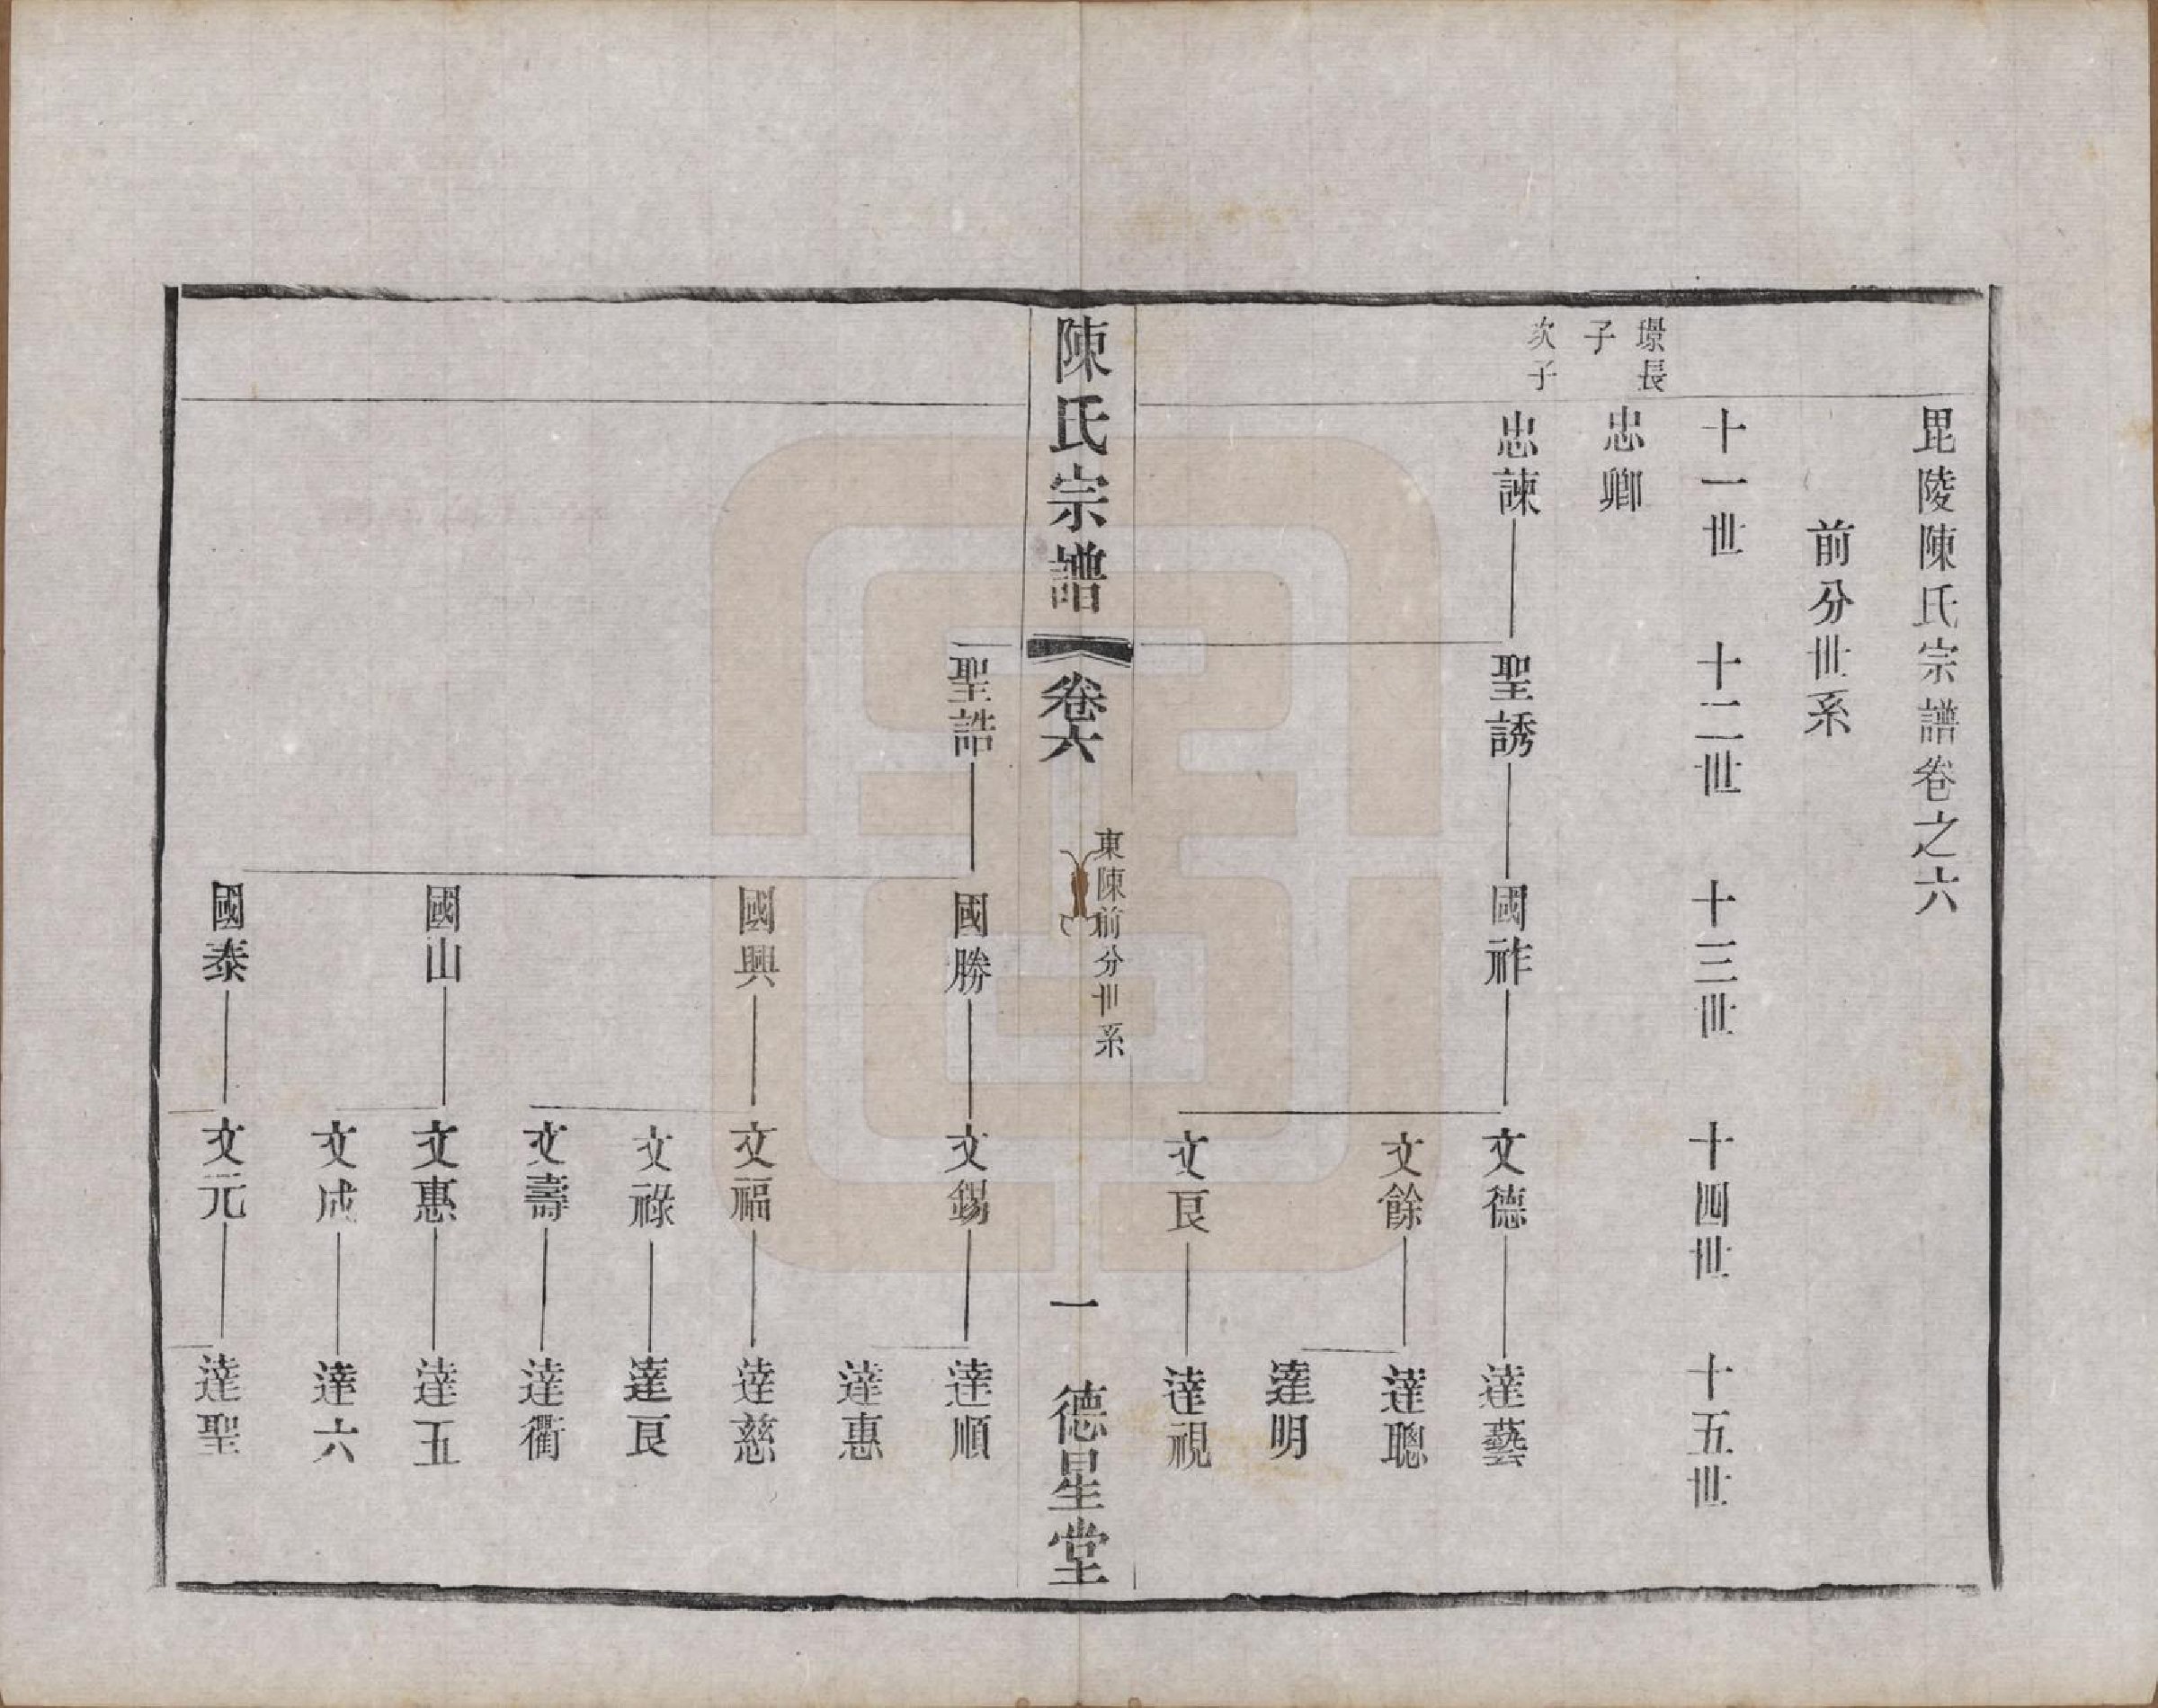 毘陵陳氏宗譜卷之六
前分世系
十一世
十二世
十三世
十四世
十五世
璟長
子
忠卿
次子
忠諫
聖誘
國祚
文德
達藝
文餘
達聰
達明
文良
達視
陳氏宗譜
卷六
東陳前分世系
一
德星堂
聖誥
國勝
文錫
達順
達惠
國興
文福
達慈
文祿
達良
文壽
達衢
國山
文惠
達五
文成
達六
國泰
文元
達聖